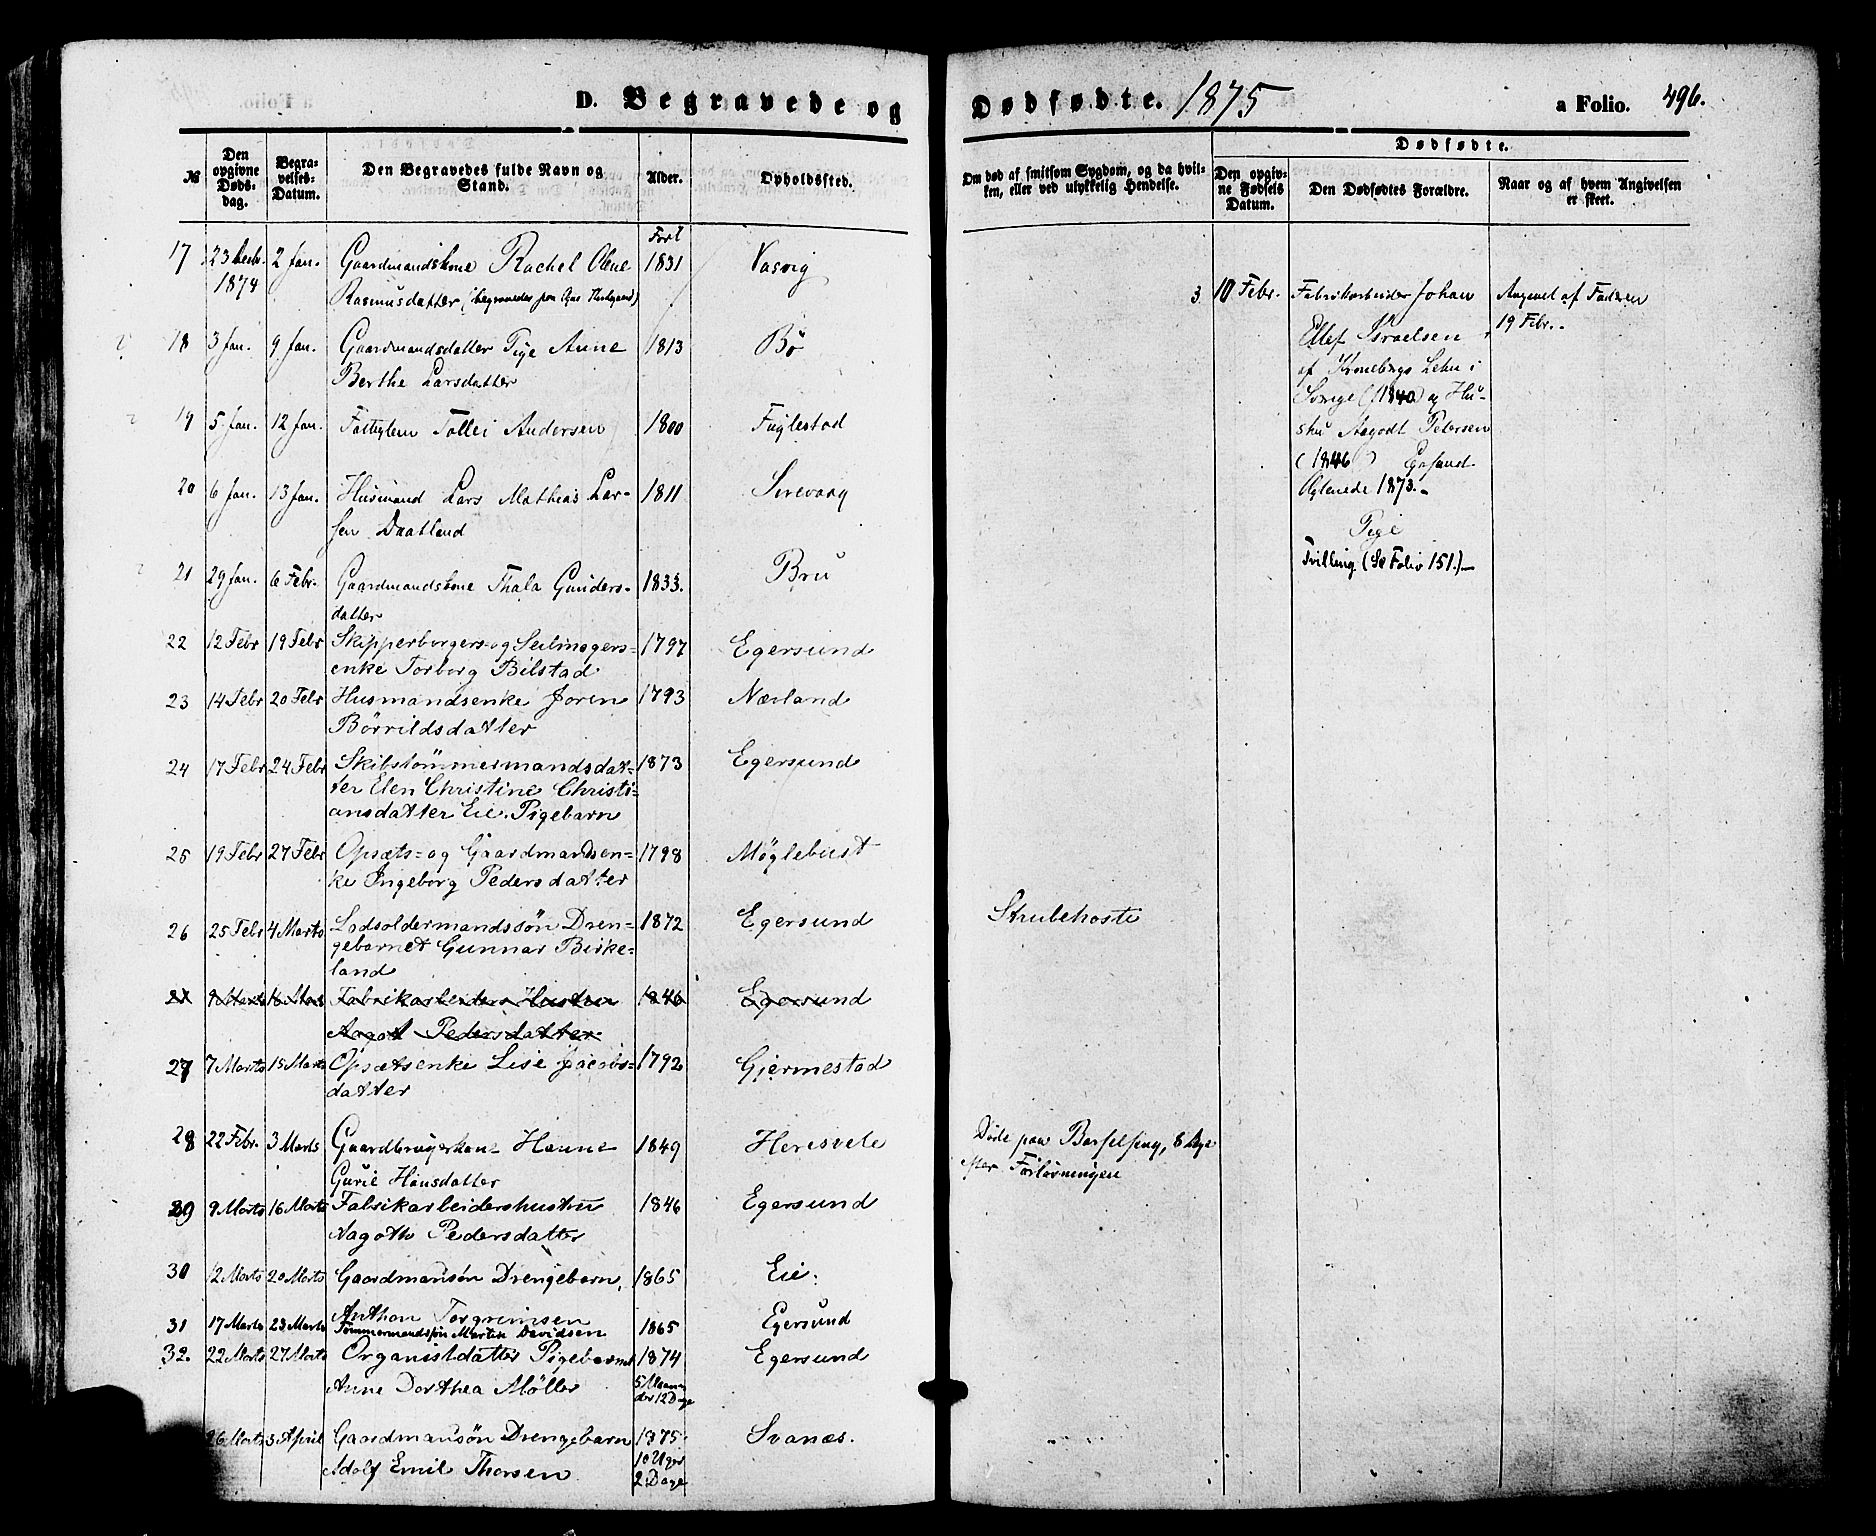 D. Begravede og Dødfødte. 1875 a Folio. 496.
№
Den opgivne Døds-dag.
Begra-velses-Datum.
Den Begravedes fulde Navn og Stand.
Alder.
Opholdssted.
Om død af smitsom Sygdom, og da hvil-
ken, eller ved ulykkelig Hendelse.
Dødfødte.
Den opgiv-ne Fødsels Datum.
Den Dødfødtes Forældre.
Naar og af hvem Angivelsen er skeet.
Født
17 23 Decb. 2 Jan. Gaardmandskone Rachel Oline 1831 Vasvig
1874 Rasmusdatter (begravedes paa Ogne
18 3 Jan. 9 Jan. Gaardmandsdatter Pige Anne 1813 Bø
Berthe Larsdatter
19 5 Jan. 12 Jan. Fattiglem Tollei Andersen 1800 Fuglestad
20 6 Jan. 13 Jan. Husmand Lars Mathias Lar- 1811 Sirevaag
sen Daatland
21 29 Jan. 6 Febr. Gaardmandskone Thala Gunders- 1833. Bru
datter
22 12 Febr 19 Febr Skipperborgers- og Seilmagers- 1797 Egersund
enke Torborg Bilstad
23 14 Febr 20 Febr Husmandsenke Joren 1793 Nærland
Börrildsdatter
24 17 Febr 24 Febr Skibstömmermandsdat= 1873 Egersund
ter Elen Christine Christi=
ansdatter Eie. Pigebarn
25 19 Febr 27 Febr Opsæts= og Gaardmandsen= 1798 Møglebust
ke Ingeborg Pedersdatter
26 25 Febr 4 Marts Lodsoldermandssön Dren= 1872 Egersund Strubehoste
gebarnet Gunnar Birke=
land
27 9 Marts 16 Marts Fabrikarbeiders Hustru 1846 Egersund
Aagot Pedersdatter
27 7 Marts 15 Marts Opsætsenke Lise Jacobs= 1792 Gjermestad
datter
28 22 Febr. 3 Marts Gaardbrugerkone Hanne 1849 Heresvele Døde paa Barselseng, 8 Dage
Gurie Hansdatter efter Forløsningen
29 9 Marts 16 Marts Fabrikarbeidershustru 1846 Egersund
Aagoth Pedersdatter
30 12 Marts 20 Marts Gaardmansøn Drengebarn, 1865 Eie.
Anthon Torgrimsen
31 17 Marts 23 Marts Tømmermandssøn Martin Davidsen 1865 Egersund
32. 22 Marts 27 Marts Organistdatter Pigebarnet 1874 Egersund
Anne Dorthea Møller 5 Maane
der 12 Dage
26 Marts 3 April Gaardmansøn Drengebarn 1875. Svanæs.
Adolf Emil Thorsen 10 Uger
2 Dage
3 10 Febr. Fabrikarbeider Johan Angivet af Faderen
Ellef Israelsen 19 Febr.
af Kronebergs Lehn i
Sverige (1840) og Hu-
stru Aagodt Petersen
(1846) Egersund.
Ægteviede 1873.
Pige
Tvilling (Se Folio 151.)